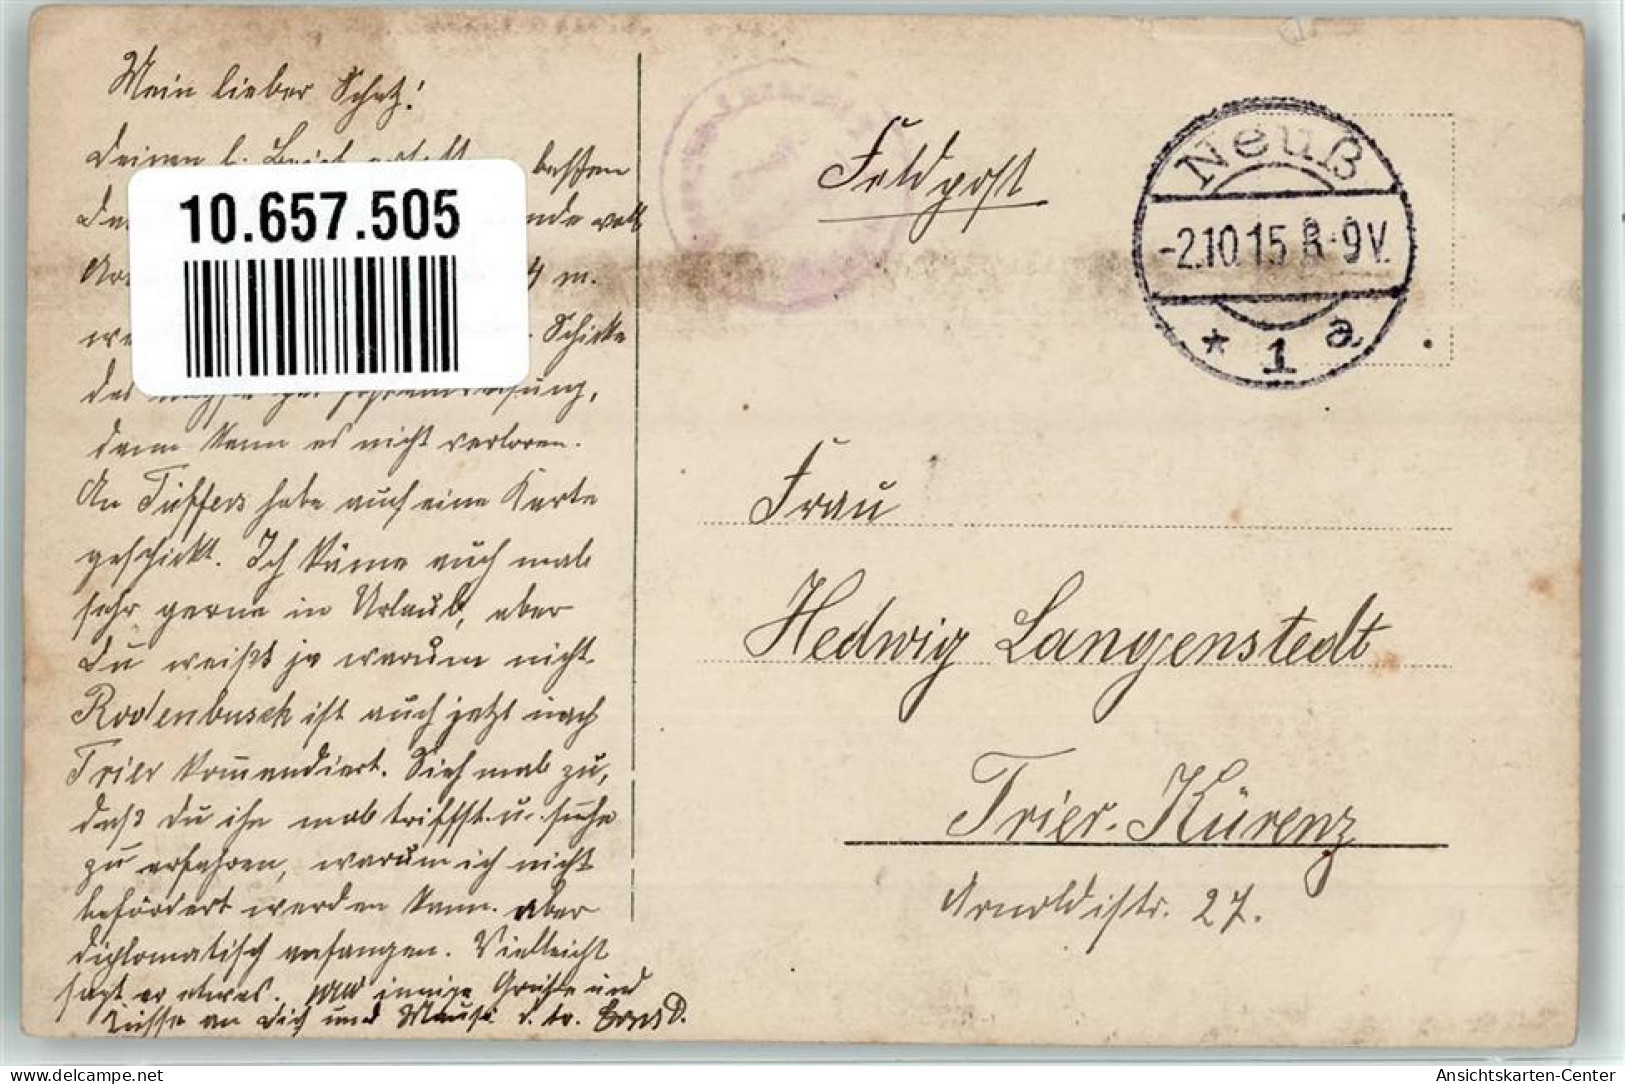 Mein lieber Schatz!
Deinen l. Brief erhalten besten
Da nde voll
m.
Schicke
das per Postanweisung,
dann kann es nicht verloren.
An Tüffers habe auch eine Karte
geschickt. Ich käme auch mal
sehr gerne in Urlaub, aber
Du weißt ja warum nicht.
Rodenbusch ist auch jetzt nach
Trier kommandiert. Sieh mal zu,
daß Du ihn mal triffst u. suche
zu erfahren, warum ich nicht
befördert werden kann. aber
diplomatisch anfangen. Vielleicht
sagt er etwas. innige Grüße und
Küsse an Dich und Mausi
10.657.505
Feldpost
Neuß
-2.10.15 8-9V.
* 1 a
Frau
Hedwig Langenstedt
Trier-Kürenz
Arnoldistr. 27.
oldthing.de
Ansichtskarten-Center